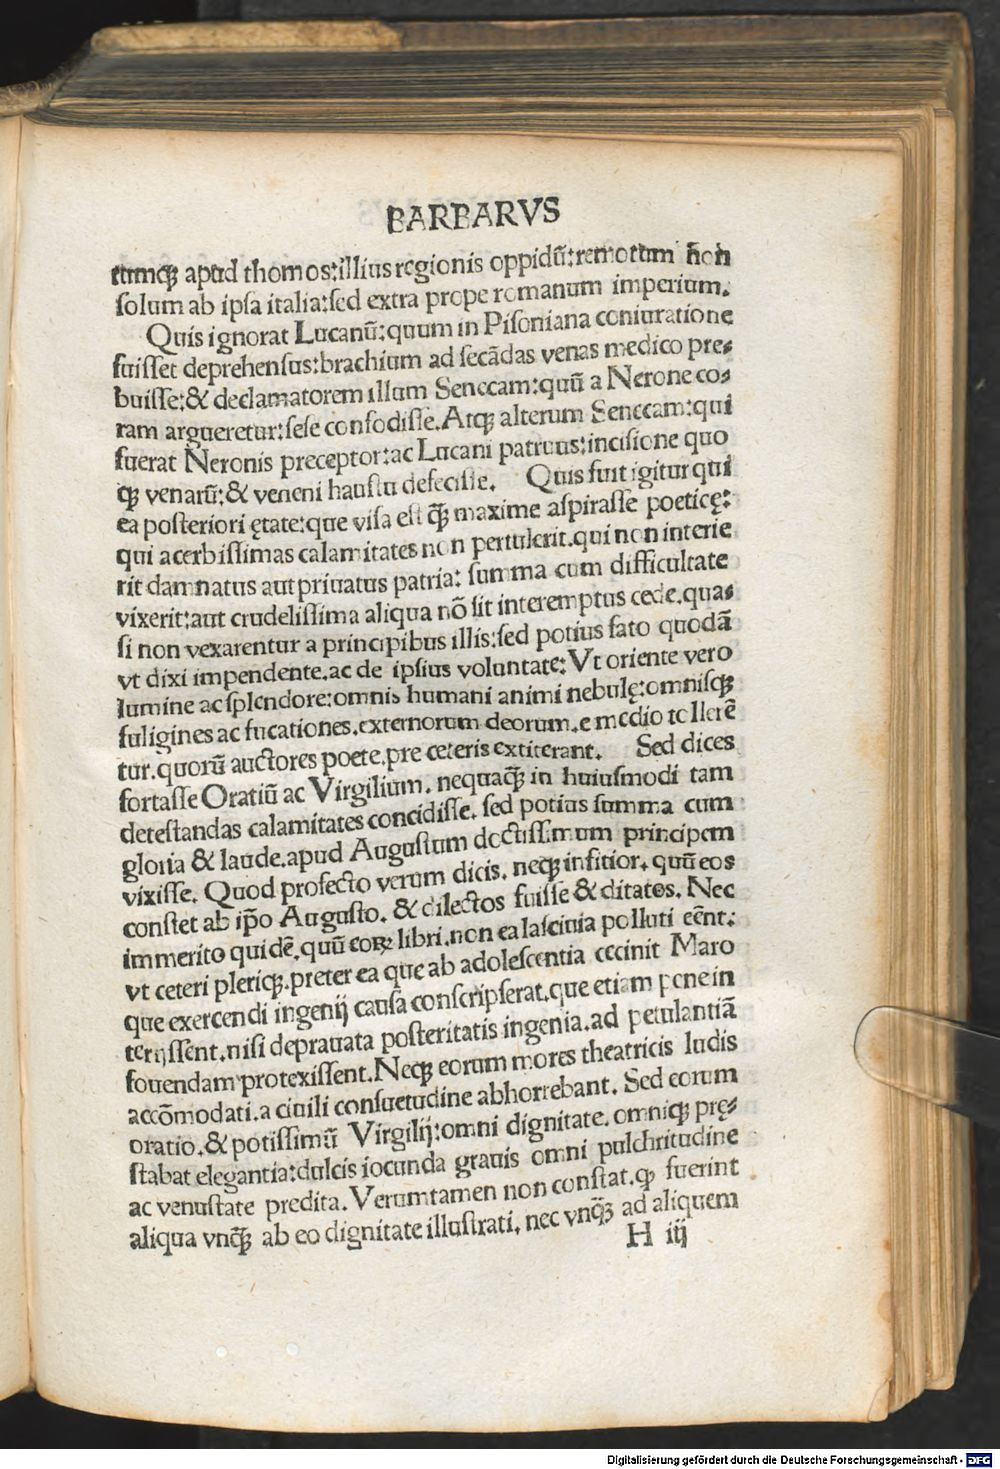 BARBARVS
tumq; apud thomos:illius regionis oppidū:remotum nōn
ſolum ab ipſa italia:ſed extra prope romanum imperium.
Quis ignorat Lucanū:quum in Piſoniana coniuratione
fuiſſet deprehenſus:brachium ad ſecādas venas medico pre⸗
buiſſe:& declamatorem illum Senecam:quū a Nerone co⸗
ram argueretur:ſeſe confodiſſe.Atq; alterum Senecam:qui
fuerat Neronis preceptor:ac Lucani patruus:inciſione quo
q; venarū:& veneni hauſtu defeciſſe. Quis fuit igitur qui
ea poſteriori ętate:que viſa eſt q̄ꝫ maxime aſpiraſſe poeticę:
qui acerbiſſimas calamitates non pertulerit.qui non interie
rit damnatus aut priuatus patria: ſumma cum difficultate
vixerit:aut crudeliſſima aliqua nō ſit interemptus cede.qua⸗
ſi non vexarentur a principibus illis:ſed potius fato quodā
vt dixi impendente.ac de ipſius voluntate: Vt oriente vero
lumine ac ſplendore:omnis humani animi nebulę:omniſq;
fuligines ac fucationes.externorum deorum.e medio tollerē
tur.quorū auctores poete.pre ceteris extiterant. Sed dices
fortaſſe Oratiū ac Virgilium. nequaq̄ꝫ in huiuſmodi tam
deteſtandas calamitates concidiſſe. ſed potius ſumma cum
gloria & laude.apud Auguſtum doctiſſimum principem
vixiſſe. Quod profecto verum dicis. neq; inficior. quū eos
conſtet ab ip̄o Auguſto. & dilectos fuiſſe & ditatos. Nec
immerito quidē.quū eoꝝ libri.non ea laſciuia polluti eēnt:
vt ceteri pleriq;.preter ea que ab adoleſcentia cecinit Maro
que exercendi ingenij cauſa conſcripſerat.que etiam pene in
terijſſent.niſi deprauata poſteritatis ingenia.ad petulantiā
fouendam protexiſſent.Neq; eorum mores theatricis ludis
accōmodati.a ciuili conſuetudine abhorrebant. Sed eorum
oratio.& potiſſimū Virgilij:omni dignitate.omniq; prę⸗
ſtabat elegantia:dulcis iocunda grauis omni pulchritudine
ac venuſtate predita. Verumtamen non conſtat.ꝙ fuerint
aliqua vnq̄ꝫ ab eo dignitate illuſtrati. nec vnq̄ꝫ ad aliquem
H iij
Digitalisierung gefördert durch die Deutsche Forschungsgemeinschaft - DFG